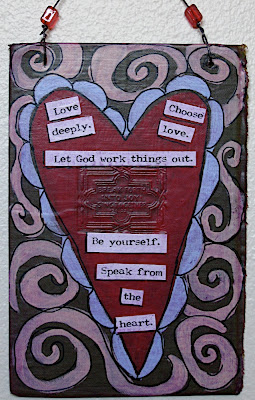 Love
deeply.
Choose
love.
Let God work things out.
Be yourself.
Speak from
the
heart.